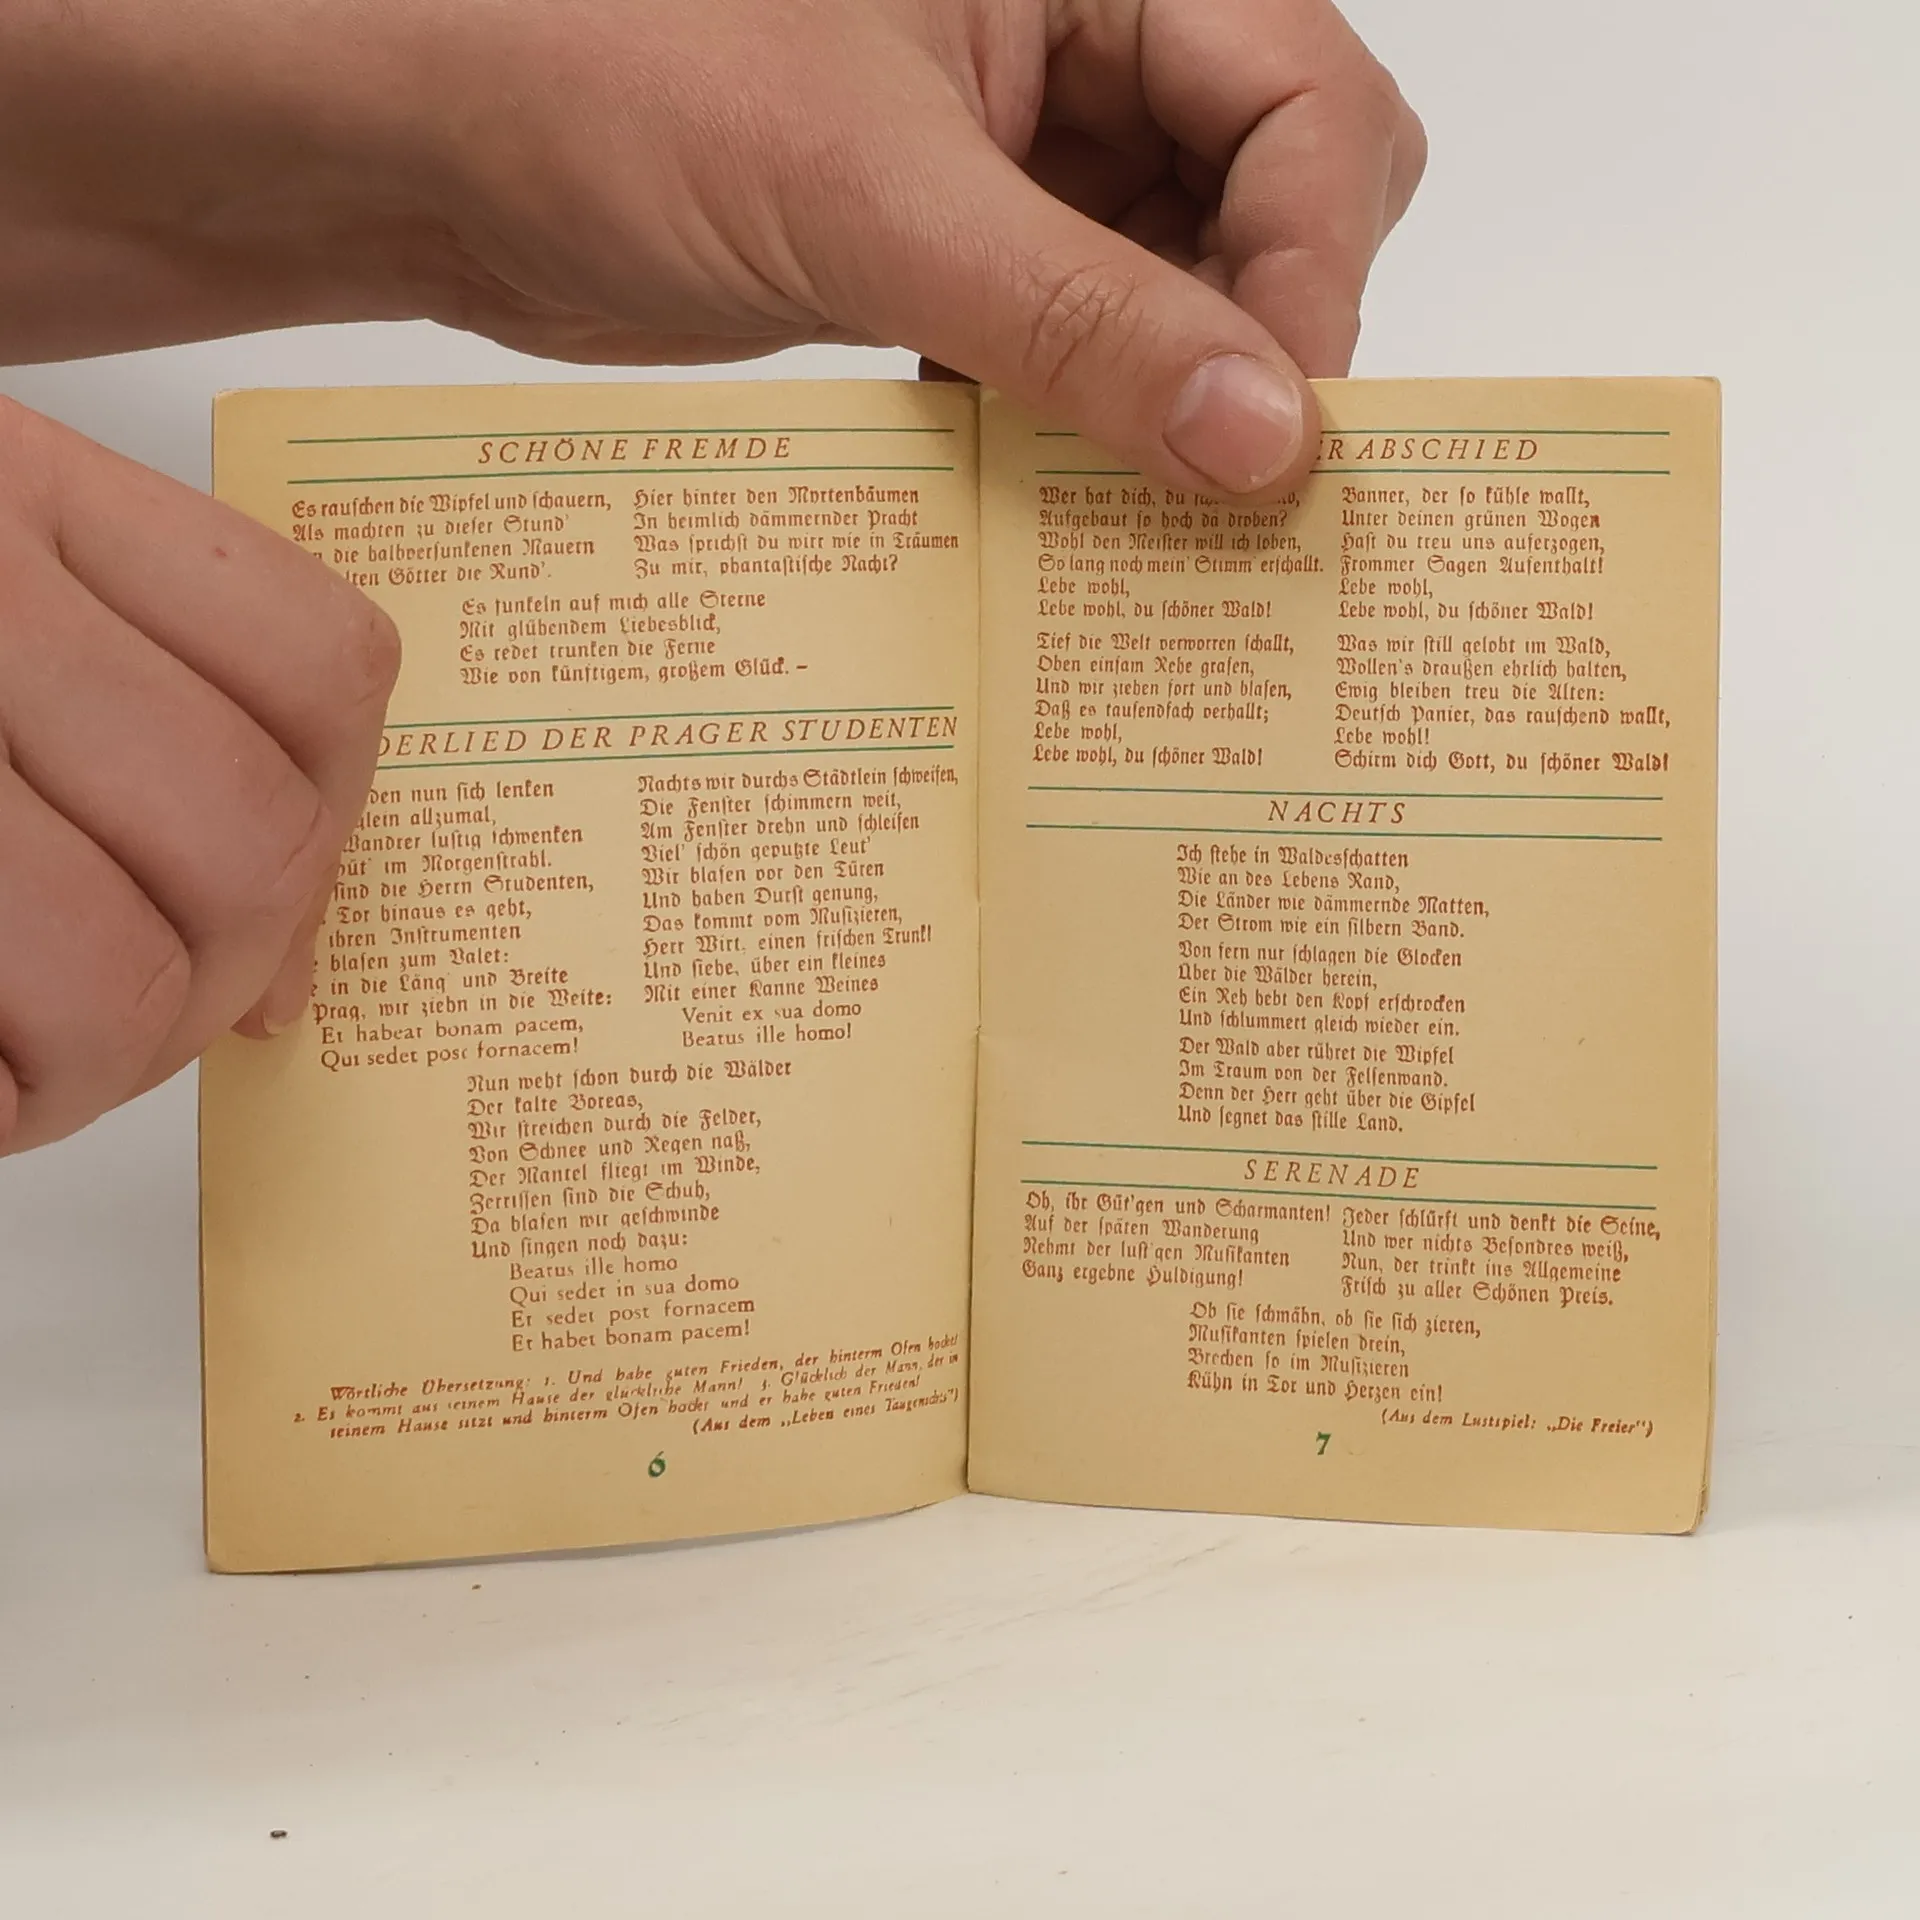 SCHÖNE FREMDE
Es rauschen die Wipfel und schauern,
Als machten zu dieser Stund'
die halbversunkenen Mauern
Götter die Rund'.
Hier hinter den Myrtenbäumen
In heimlich dämmernder Pracht
Was sprichst du wirr wie in Träumen
Zu mir, phantastische Nacht?
Es funkeln auf mich alle Sterne
Mit glühendem Liebesblick,
Es redet trunken die Ferne
Wie von künftigem, großem Glück. –
DERLIED DER PRAGER STUDENTEN
nun sich lenken
allzumal,
Wandrer lustig schwenken
im Morgenstrahl.
sind die Herrn Studenten,
Tor hinaus es geht,
ihren Instrumenten
blasen zum Valet:
in die Läng' und Breite
Prag, wir ziehn in die Weite:
Et habeat bonam pacem,
Qui sedet post fornacem!
Nachts wir durchs Städtlein schweifen,
Die Fenster schimmern weit,
Am Fenster drehn und schleifen
Viel' schön geputzte Leut'
Wir blasen vor den Türen
Und haben Durst genung,
Das kommt vom Musizieren,
Herr Wirt, einen frischen Trunk!
Und siehe, über ein kleines
Mit einer Kanne Weines
Venit ex sua domo
Beatus ille homo!
Nun weht schon durch die Wälder
Der kalte Boreas,
Wir streichen durch die Felder,
Von Schnee und Regen naß,
Der Mantel fliegt im Winde,
Zerrissen sind die Schuh,
Da blasen wir geschwinde
Und singen noch dazu:
Beatus ille homo
Qui sedet in sua domo
Et sedet post fornacem
Et habet bonam pacem!
Wörtliche Übersetzung: 1. Und habe guten Frieden, der hinterm Ofen hockt!
2. Es kommt aus seinem Hause der glückliche Mann! 3. Glücklich der Mann, der in
seinem Hause sitzt und hinterm Ofen hockt und er habe guten Frieden!
(Aus dem „Leben eines Taugenichts")
6
ER ABSCHIED
Wer hat dich, du
Aufgebaut so hoch da droben?
Wohl den Meister will ich loben,
So lang noch mein' Stimm' erschallt.
Lebe wohl,
Lebe wohl, du schöner Wald!
Tief die Welt verworren schallt,
Oben einsam Rehe grasen,
Und wir ziehen fort und blasen,
Daß es tausendfach verhallt;
Lebe wohl,
Lebe wohl, du schöner Wald!
Banner, der so kühle wallt,
Unter deinen grünen Wogen
Hast du treu uns auferzogen,
Frommer Sagen Aufenthalt!
Lebe wohl,
Lebe wohl, du schöner Wald!
Was wir still gelobt im Wald,
Wollen's draußen ehrlich halten,
Ewig bleiben treu die Alten:
Deutsch Panier, das rauschend wallt,
Lebe wohl!
Schirm dich Gott, du schöner Wald!
NACHTS
Ich stehe in Waldesschatten
Wie an des Lebens Rand,
Die Länder wie dämmernde Matten,
Der Strom wie ein silbern Band.
Von fern nur schlagen die Glocken
Über die Wälder herein,
Ein Reh hebt den Kopf erschrocken
Und schlummert gleich wieder ein.
Der Wald aber rühret die Wipfel
Im Traum von der Felsenwand.
Denn der Herr geht über die Gipfel
Und segnet das stille Land.
SERENADE
Oh, ihr Güt'gen und Scharmanten!
Auf der späten Wanderung
Nehmt der lust'gen Musikanten
Ganz ergebne Huldigung!
Jeder schlürft und denkt die Seine,
Und wer nichts Besondres weiß,
Nun, der trinkt ins Allgemeine
Frisch zu aller Schönen Preis.
Ob sie schmähn, ob sie sich zieren,
Musikanten spielen drein,
Brechen so im Musizieren
Kühn in Tor und Herzen ein!
(Aus dem Lustspiel: „Die Freier")
7